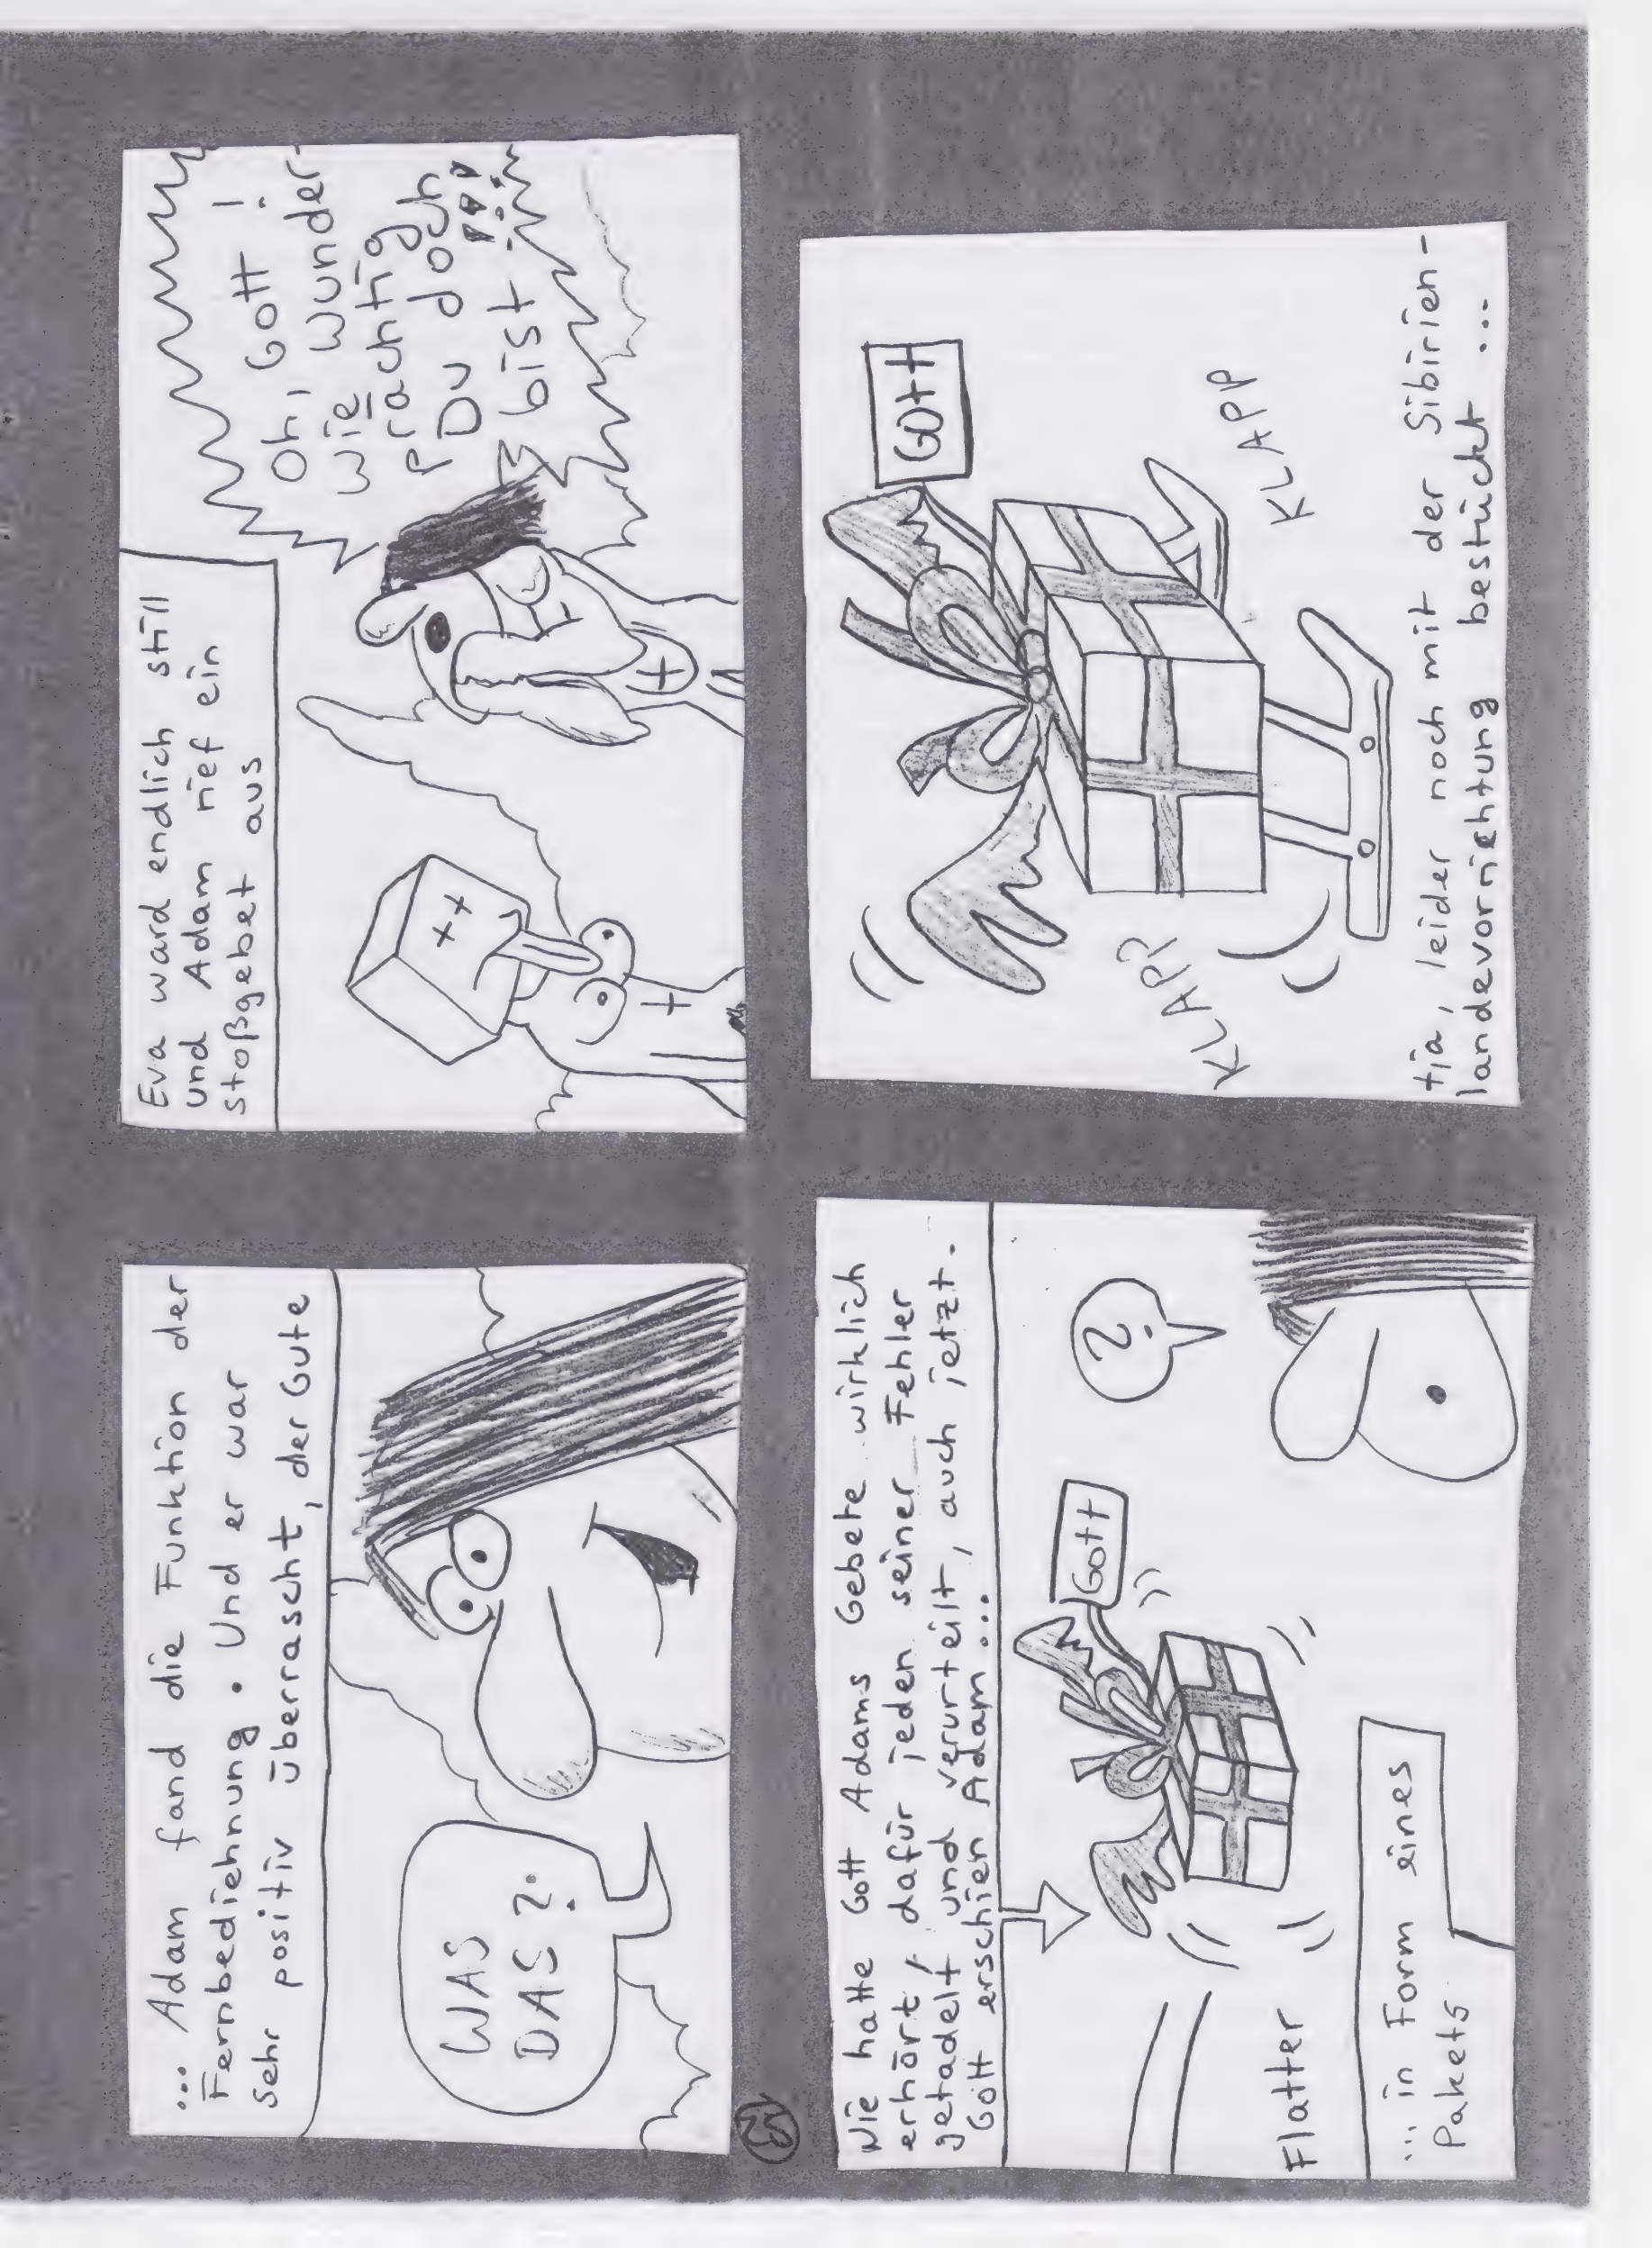 ... Adam fand die Funktion der
Fernbediehnung. Und er war
sehr positiv überrascht, der Gute
WAS
DAS?
Eva ward endlich still
und Adam rief ein
stoßgebet aus
Oh, Gott!
Wie wunder-
prächtig
Du doch
bist!!!
Nie hatte Gott Adams Gebete wirklich
erhört, dafür jeden seiner Fehler
getadelt und verurteilt, auch jetzt.
Gott erschien Adam...
Gott
?
Flatter
... in Form eines
Pakets
GOTT
KLAPP
KLAPP
tja, leider noch mit der Sibirien-
landevorriehtung bestückt ...